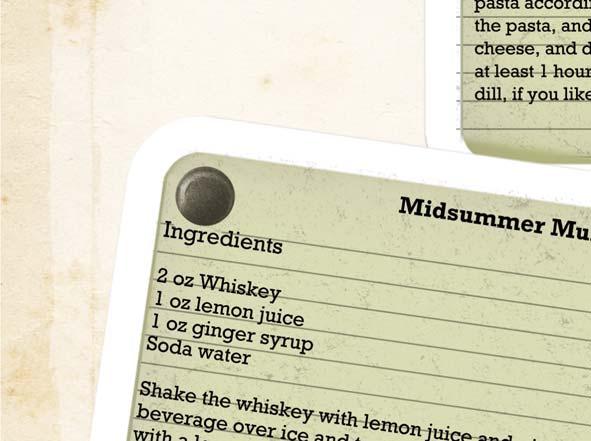 the pasta, and
cheese, and d
at least 1 hour
dill, if you like
Midsummer Mu
Ingredients
2 oz Whiskey
1 oz lemon juice
1 oz ginger syrup
Soda water
Shake the whiskey with lemon juice and
beverage over ice and
with a